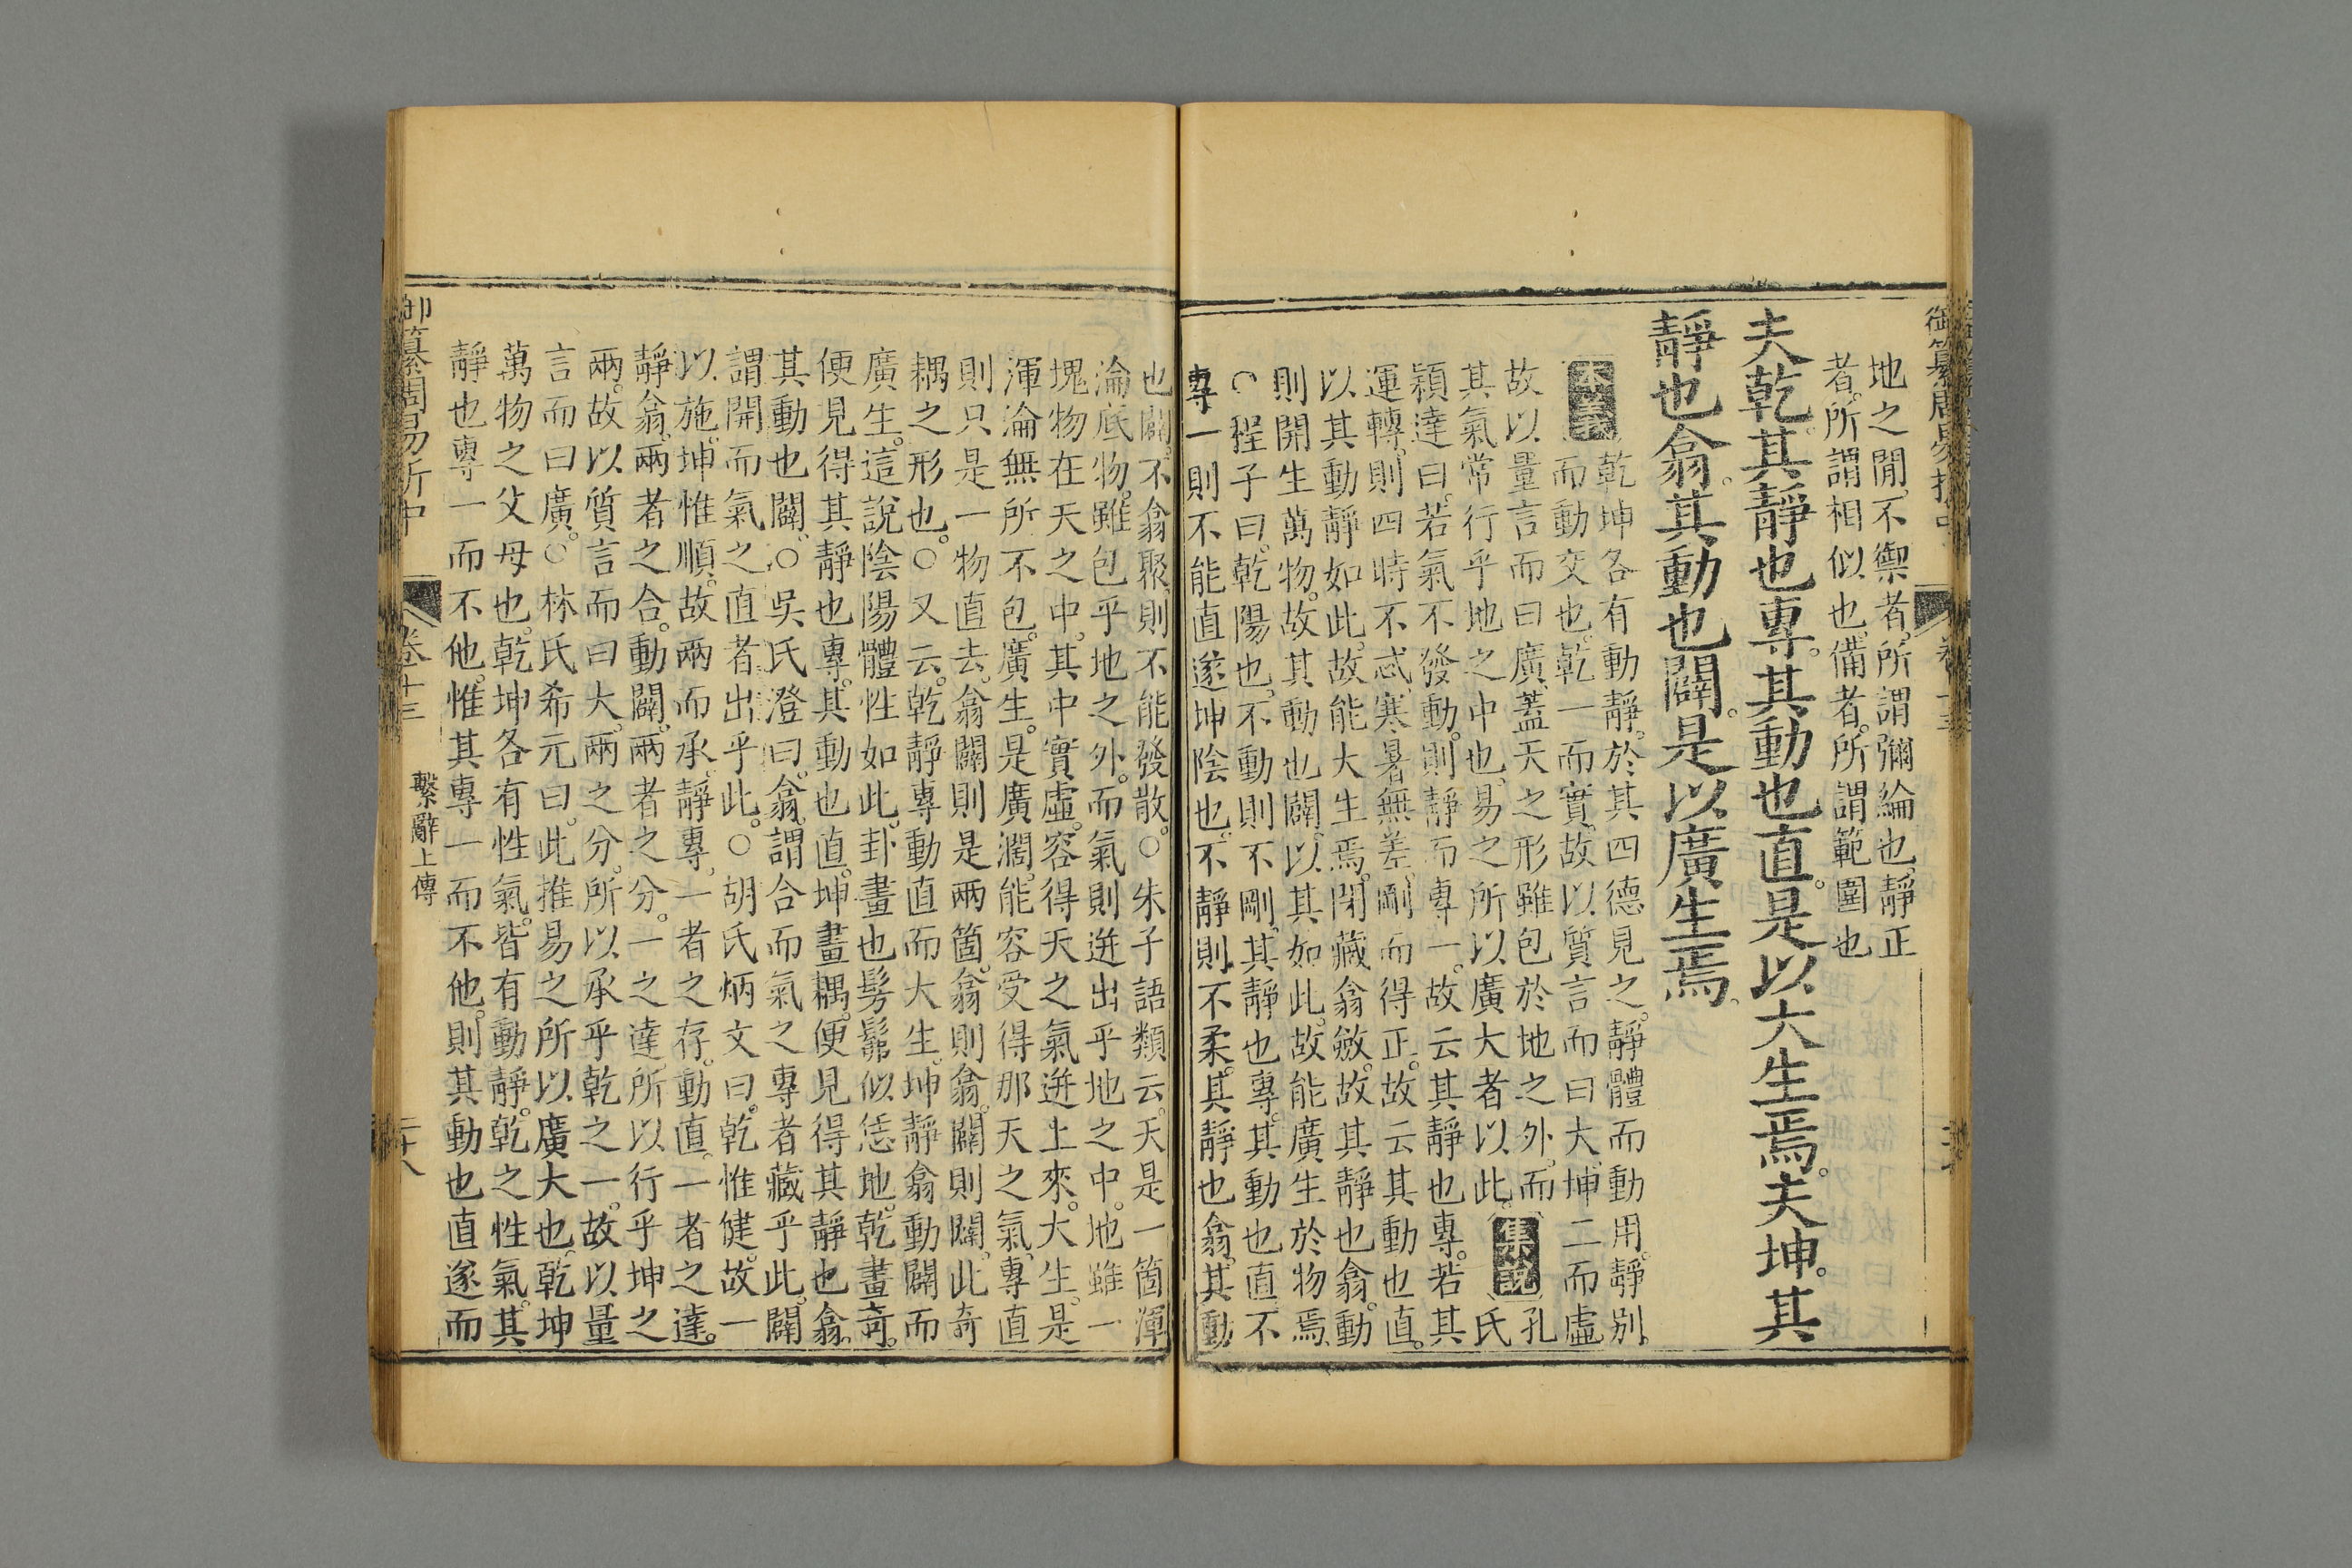 御纂周易折中
地之閒不禦者所謂彌綸也靜正
者所謂相似也備者所謂範圍也
夫乾其靜也專其動也直是以大生焉夫坤其
靜也翕其動也闢是以廣生焉
本義乾坤各有動靜於其四德見之靜體而動用靜別
而動交也乾一而實故以質言而曰大坤二而虛
故以量言而曰廣蓋天之形雖包於地之外而
其氣常行乎地之中也易之所以廣大者以此集說孔氏
穎達曰若氣不發動則靜而專一故云其靜也專若其
運轉則四時不忒寒暑無差剛而得正故云其動也直
以其動靜如此故能大生焉閉藏翕斂故其靜也翕動
則開生萬物故其動也闢以其如此故能廣生於物焉
○程子曰乾陽也不動則不剛其靜也專其動也直不
專一則不能直遂坤陰也不靜則不柔其靜也翕其動
也闢不翕聚則不能發散○朱子語類云天是一箇渾
淪底物雖包乎地之外而氣則迸出乎地之中地雖一
塊物在天之中其中實虛容得天之氣迸上來大生是
渾淪無所不包廣生是廣濶能容受得那天之氣專直
則只是一物直去翕闢則是兩箇翕則翕闢則闢此奇
耦之形也○又云乾靜專動直而大生坤靜翕動闢而
廣生這說陰陽體性如此卦畫也髣髴似恁地乾畫奇
便見得其靜也專其動也直坤畫耦便見得其靜也翕
其動也闢○吳氏澄曰翕謂合而氣之專者藏乎此闢
謂開而氣之直者出乎此○胡氏炳文曰乾惟健故一
以施坤惟順故兩而承靜專一者之存動直一者之達
靜翕兩者之合動闢兩者之分一之達所以行乎坤之
兩故以質言而曰大兩之分所以承乎乾之一故以量
言而曰廣○林氏希元曰此推易之所以廣大也乾坤
萬物之父母也乾坤各有性氣皆有動靜乾之性氣其
靜也專一而不他惟其專一而不他則其動也直遂而
御纂周易折中
卷十三
繫辭上傳
二十八